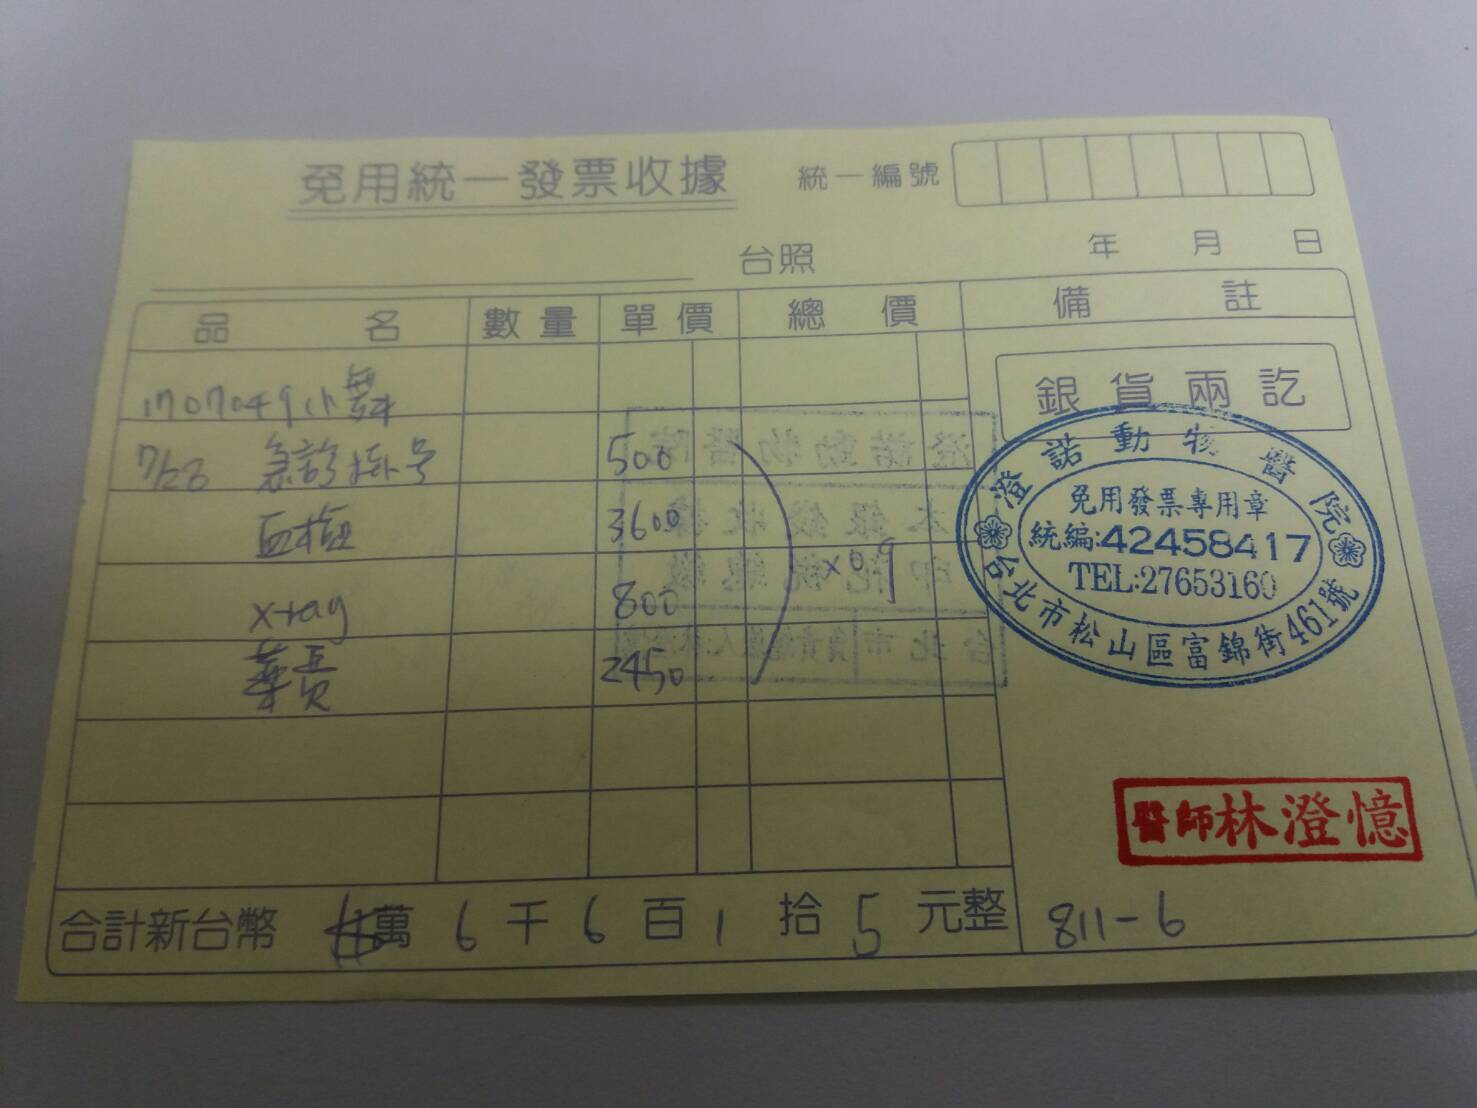 免用統一發票收據 統一編號
台照 年 月 日
品名 數量 單價 總價 備註
銀貨兩訖
1707049小舞
7/23 急診掛号 500
血檢 3600
x-ray 800
藥費 2450
×0.9
澄諾動物醫院
免用發票專用章
統編:42458417
TEL:27653160
台北市松山區富錦街461號
醫師林澄憶
合計新台幣 萬 6 千 6 百 1 拾 5 元整
811-6